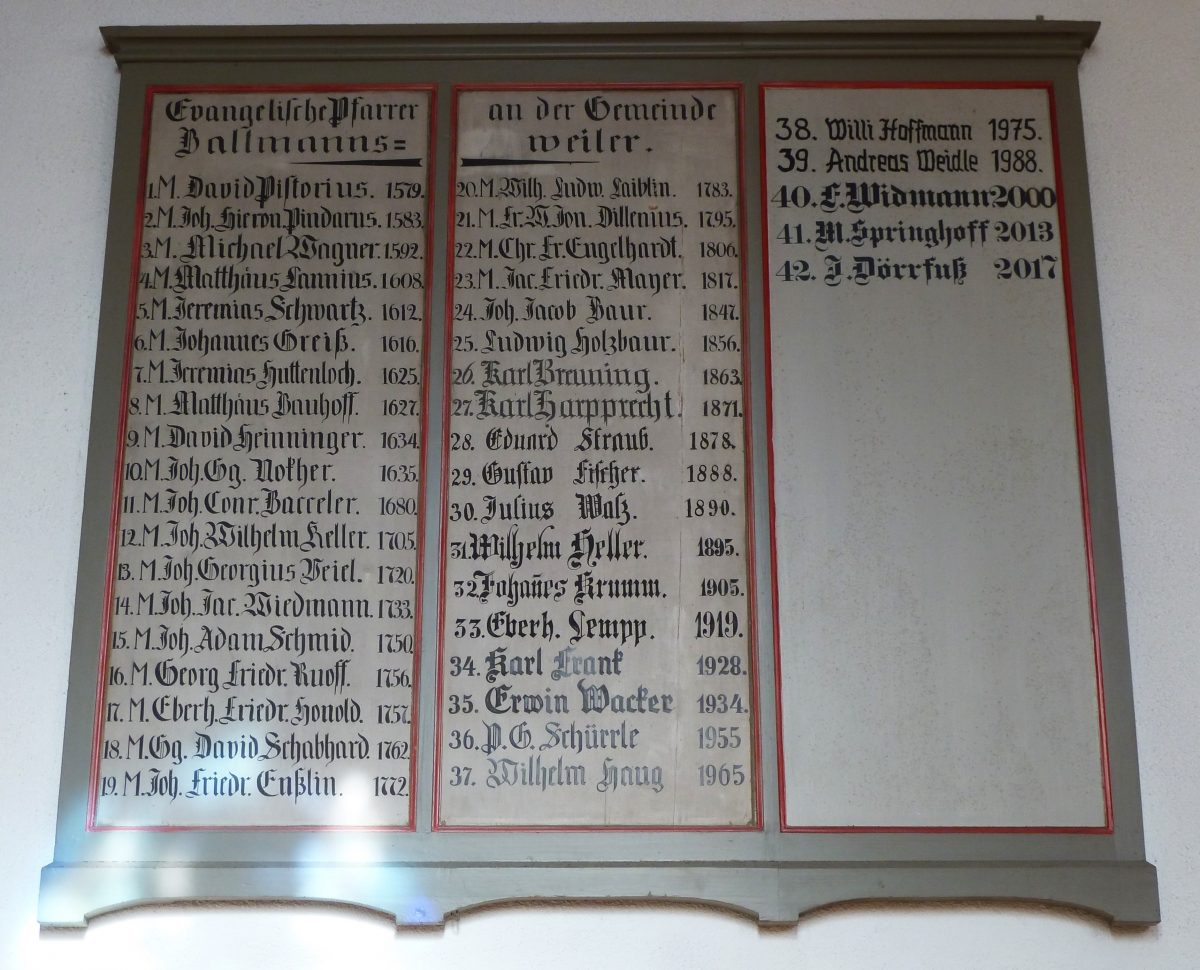 Evangelische Pfarrer
Ballmanns=
1. M. David Pistorius. 1579.
2. M. Joh. Hieron. Pindarus. 1583.
3. M. Michael Wagner. 1592.
4. M. Matthäus Lannius. 1608.
5. M. Jeremias Schwartz. 1612.
6. M. Johannes Greiß. 1616.
7. M. Jeremias Huttenloch. 1625.
8. M. Matthäus Bauhoff. 1627.
9. M. David Heinninger. 1634.
10. M. Joh. Gg. Nokher. 1635.
11. M. Joh. Conr. Bacceler. 1680.
12. M. Joh. Wilhelm Keller. 1705.
13. M. Joh. Georgius Veiel. 1720.
14. M. Joh. Jac. Wiedmann. 1733.
15. M. Joh. Adam Schmid. 1750.
16. M. Georg Friedr. Ruoff. 1756.
17. M. Eberh. Friedr. Honold. 1757.
18. M. Gg. David Schabhard. 1762.
19. M. Joh. Friedr. Enßlin. 1772.
an der Gemeinde
weiler.
20. M. Wilh. Ludw. Laiblin. 1783.
21. M. Fr. W. Jon. Dillenius. 1795.
22. M. Chr. Fr. Engelhardt. 1806.
23. M. Jac. Friedr. Mayer. 1817.
24. Joh. Jacob Baur. 1847.
25. Ludwig Holzbaur. 1856.
26. Karl Breuning. 1863.
27. Karl Harpprecht. 1871.
28. Eduard Straub. 1878.
29. Gustav Fischer. 1888.
30. Julius Walz. 1890.
31. Wilhelm Heller. 1895.
32. Johañes Krumm. 1905.
33. Eberh. Lempp. 1919.
34. Karl Frank 1928.
35. Erwin Wacker 1934.
36. P. G. Schürrle 1955
37. Wilhelm Haug 1965
38. Willi Hoffmann 1975.
39. Andreas Weidle 1988.
40. F. Widmann 2000
41. M. Springhoff 2013
42. J. Dörrfuß 2017